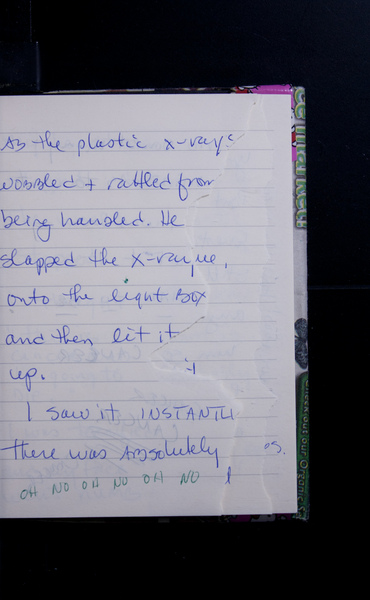 As the plastic x-rays
wobbled + rattled from
being handled. He
slapped the x-ray
onto the light box
and then lit it
up.
I saw it INSTANTL
There was Absolutely os.
OH NO OH NO OH NO